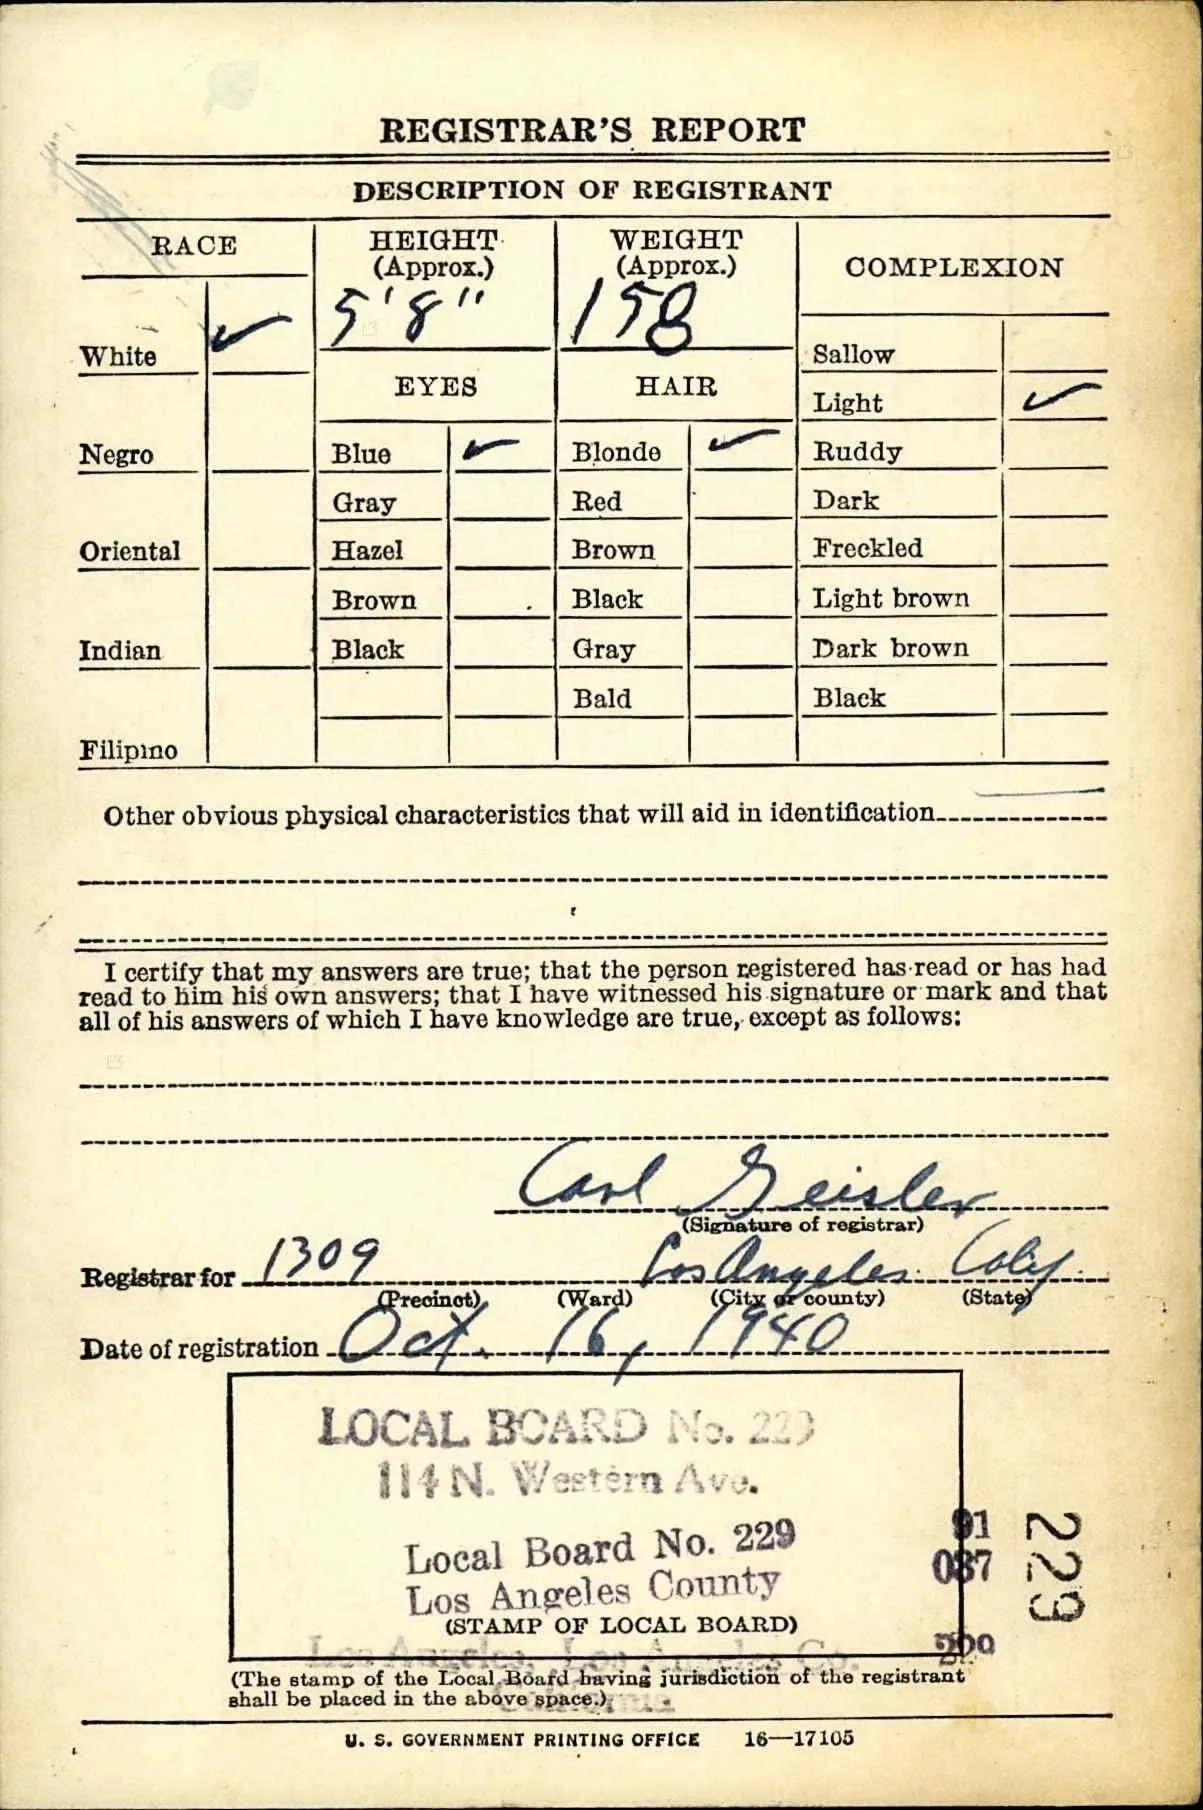 REGISTRAR'S REPORT
DESCRIPTION OF REGISTRANT
RACE
HEIGHT
(Approx.)
5'8"
WEIGHT
(Approx.)
158
COMPLEXION
White ✓
Negro
Oriental
Indian
Filipino
EYES
Blue ✓
Gray
Hazel
Brown
Black
HAIR
Blonde ✓
Red
Brown
Black
Gray
Bald
Sallow
Light ✓
Ruddy
Dark
Freckled
Light brown
Dark brown
Black
Other obvious physical characteristics that will aid in identification
I certify that my answers are true; that the person registered has read or has had
read to him his own answers; that I have witnessed his signature or mark and that
all of his answers of which I have knowledge are true, except as follows:
Carl Geisler
(Signature of registrar)
Registrar for 1309 Los Angeles Calif.
(Precinct) (Ward) (City or county) (State)
Date of registration Oct. 16, 1940
LOCAL BOARD No. 229
114 N. Western Ave.
Local Board No. 229
Los Angeles County
(STAMP OF LOCAL BOARD)
Los Angeles, Los Angeles Co.
California
91
037
229
229
(The stamp of the Local Board having jurisdiction of the registrant
shall be placed in the above space.)
U. S. GOVERNMENT PRINTING OFFICE 16—17105